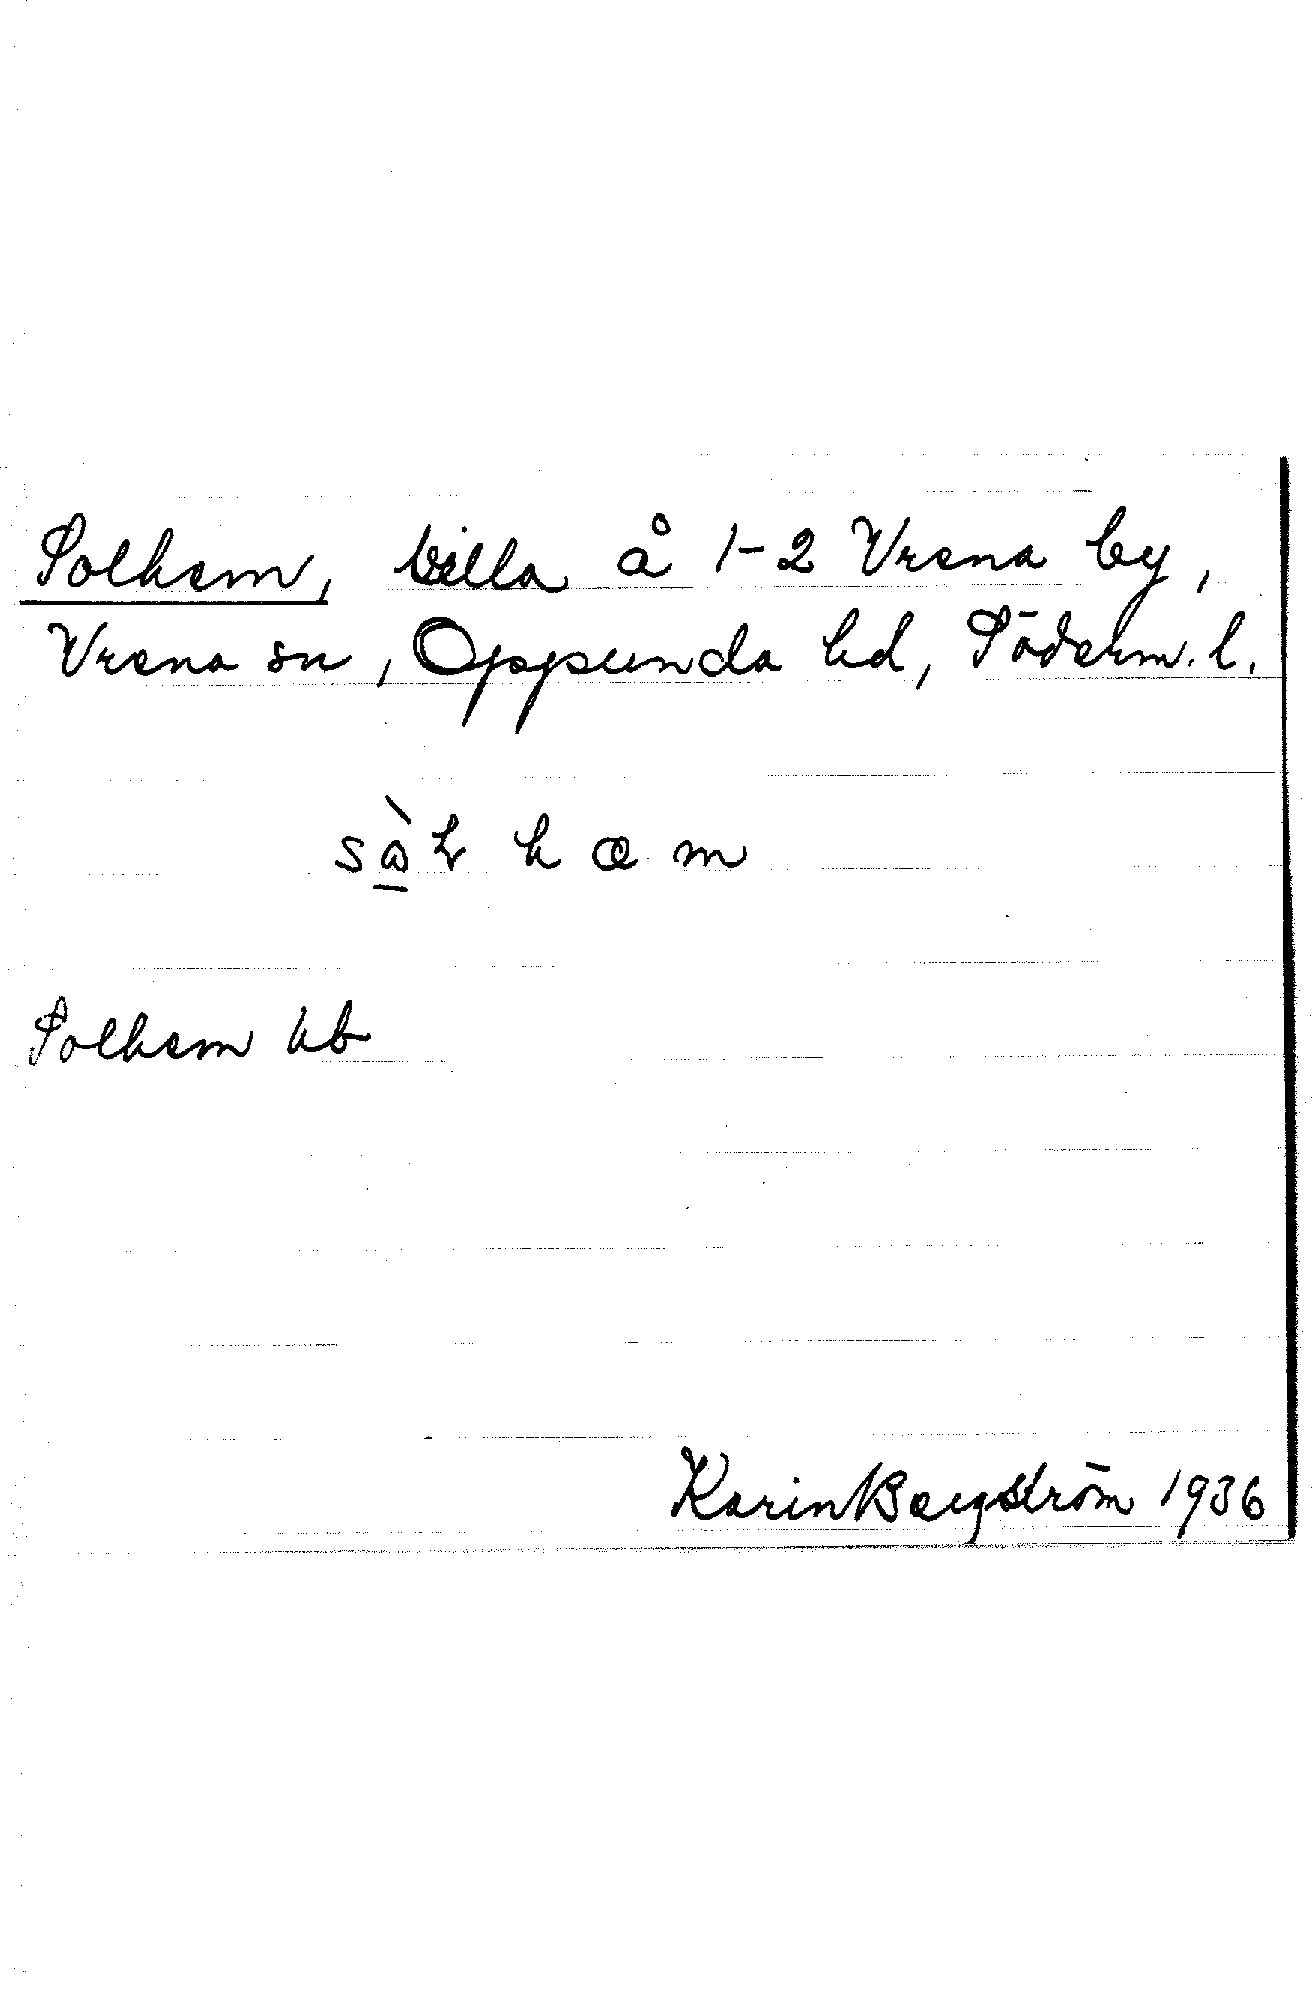 Solhem, villa å 1-2 Vrena by,
Vrena sn, Oppunda hd, Söderm. l.
Solhem kb
Karin Bergström 1936